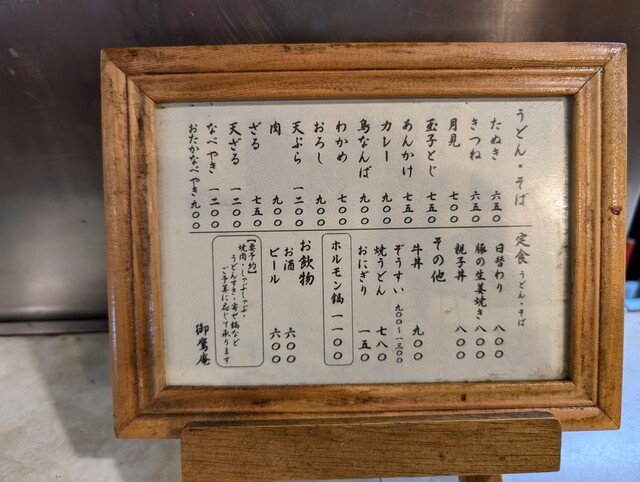 うどん・そば
たぬき 六五〇
きつね 六五〇
月見 七〇〇
玉子とじ 七五〇
あんかけ 七五〇
カレー 九〇〇
鳥なんば 九〇〇
わかめ 七〇〇
おろし 九〇〇
天ぷら 一二〇〇
肉 九〇〇
ざる 七五〇
天ざる 一二〇〇
なべやき 一二〇〇
おたかなべやき 九〇〇
定食 うどん・そば
日替わり 八〇〇
豚の生姜焼き 八〇〇
親子丼 八〇〇
その他
牛丼 九〇〇
ぞうすい 九〇〇〜一三〇〇
焼うどん 七八〇
おにぎり 一五〇
ホルモン鍋 一一〇〇
お飲物
お酒 六〇〇
ビール 六〇〇
【要予約】
焼肉・しゃぶしゃぶ・
うどんすき・寄せ鍋など
ご予算に応じて承ります
御鷹庵